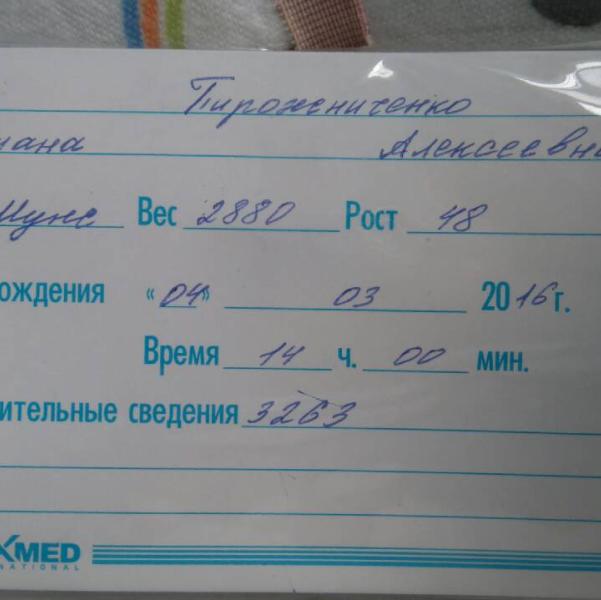 Пирожниченко
иана Алексеевна
Муже Вес 2880 Рост 48
ождения «04» 03 2016 г.
Время 14 ч. 00 мин.
ительные сведения 3263
XMED
NATIONAL